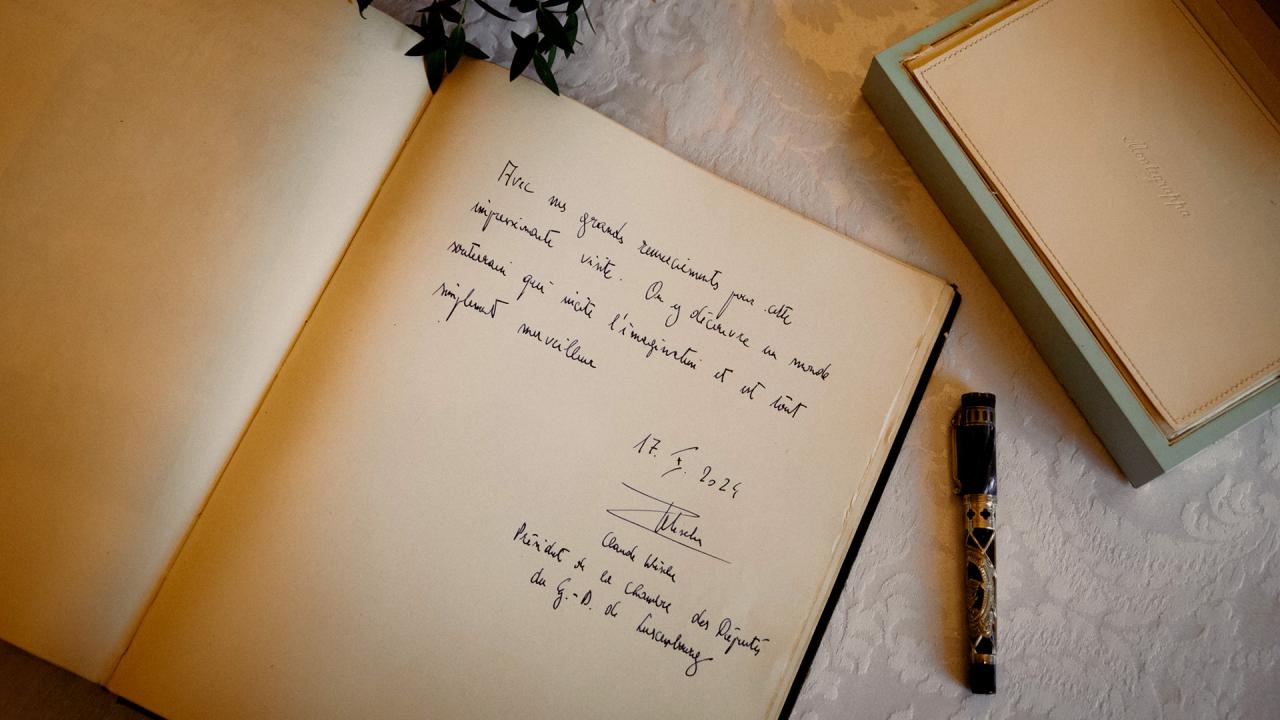 Avec mes grands remerciements pour cette
impressionante visite. On y découvre un monde
souterrain qui incite l'imagination et est tout
simplement merveilleux
17. X. 2024
Claude Wiseler
Président de la Chambre des Députés
du G.-D. de Luxembourg
Montegrappa